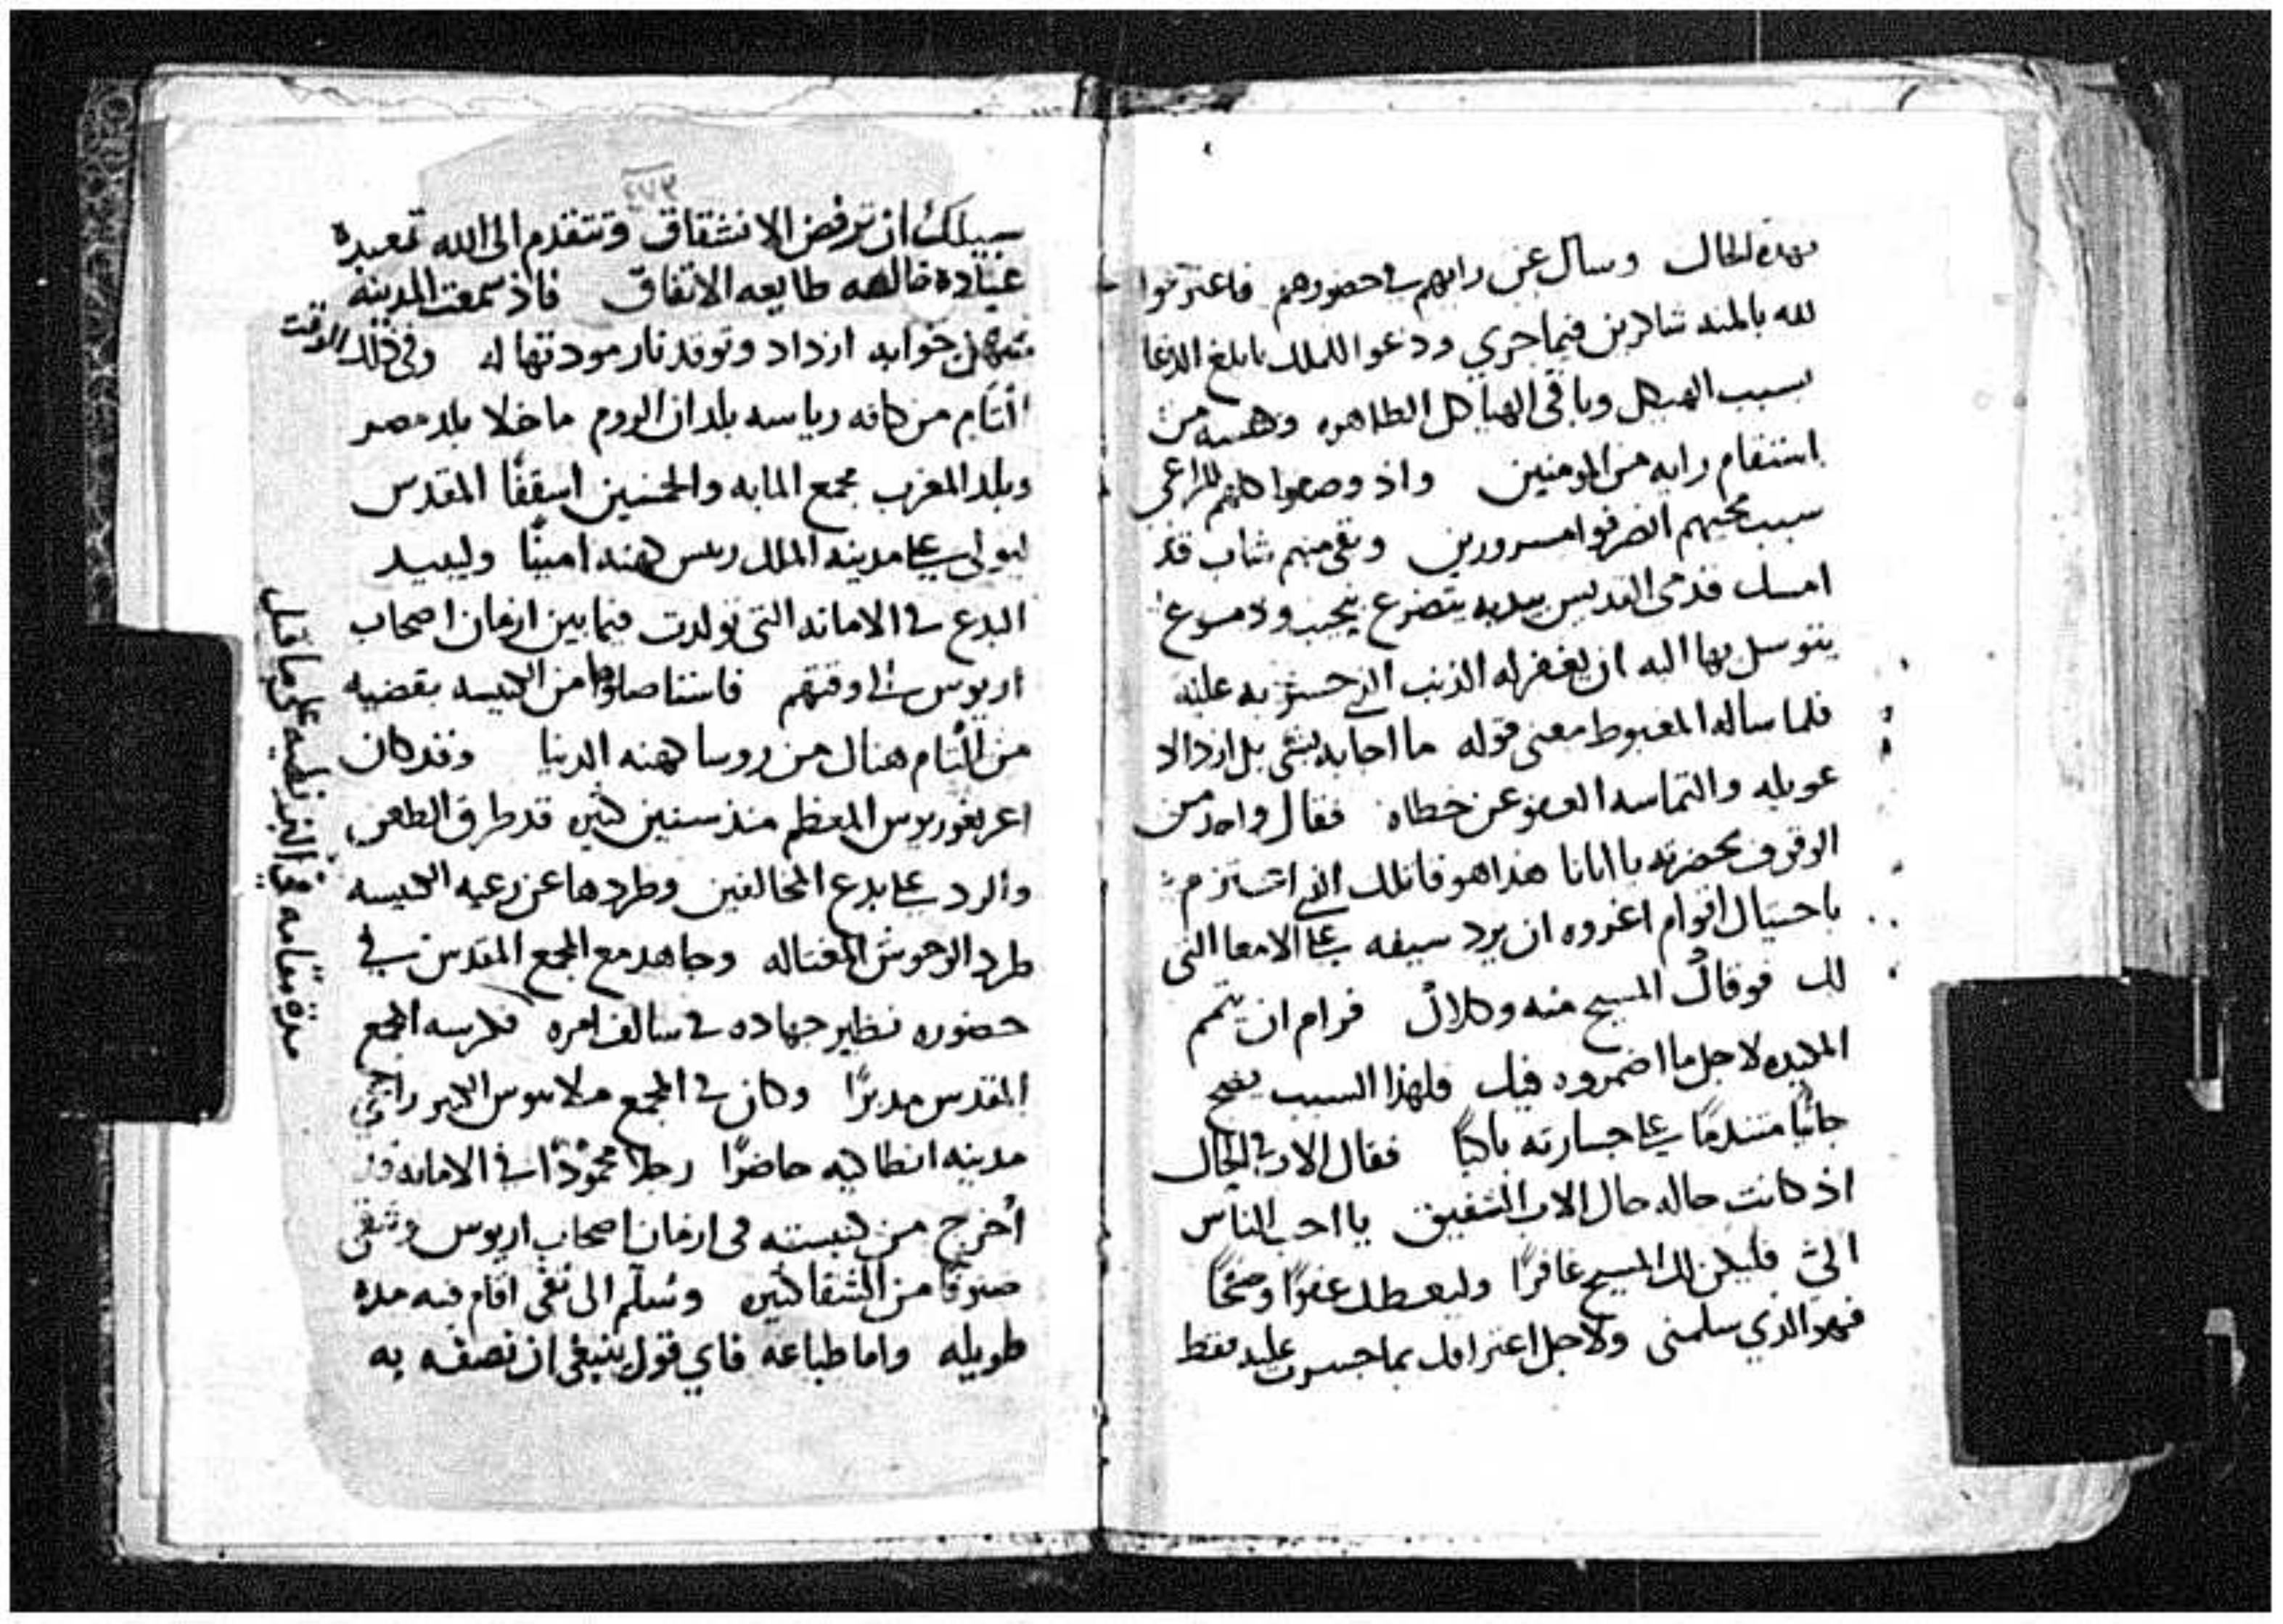 بهده الحال وسال عن رايهم في حضورهم فاعترفوا
لله بالمنه شاكرين فيما جري ودعوا للملك بابلغ الدعا
بسبب الهيكل وباقي الهياكل الطاهره من
رايه من المومنين واذ كلهم للراعي
سبب مجيهم انصرفوا مسرورين وبقي منهم شاب قد
امسك قدمي القديس بيديه يتضرع ودموع
يتوسل بها اليه ان يغفر له الذنب الذي به عليه
فلما ساله المغبوط معني قوله ما اجابه بشي بل ازداد
عويله والتماسه العفو عن خطاه فقال واحد من
الوقوف بحضرته يا ابانا هدا هو قاتلك الذي
باحتيال اقوام اغروه ان يرد سيفه علي الامعا التي
لك فوقاك المسيح منه وكلاك فرام ان يتمم
المكيده لاجل ما اضمروه فيك فلهذا السبب
متندمًا علي جسارته باكيًا فقال الاب في الحال
اذ كانت حاله حال الاب الشفيق يا احب الناس
الي فليكن لك المسيح غافرًا وليعطك عفوًا وصفحًا
فهو الذي سلمني ولاجل اعترافك بما جسرت عليه فقط
سبيلك ان ترفض الانشقاق وتتقدم الي الله تعبده
عباده خالصه طايعه الاتفاق فاذ سمعت المدينه
جوابه ازداد وتوقد نار مودتها له وفي ذلك الوقت
التام من كافه رياسه بلدان الروم ما خلا بلد مصر
وبلد المغرب مجمع المايه والخمسين اسقفًا المقدس
ليولي علي مدينه الملك ريس هنه امينًا وليبيد
البدع في الامانه التي تولدت فيما بين ازمان اصحاب
اريوس في اوقتهم من الكنيسه بقضيه
من التام هناك من روسا هنه الدنيا وقد كان
اغريغوريوس المعظم منذ سنين كثيره قد طرق الطعن
والرد علي بدع المخالفين وطردها عن رعيه الكنيسه
طرد الوحوش المغتاله وجاهد مع المجمع المقدس في
حضوره نظير جهاده في سالف امره المجمع
المقدس مدبرًا وكان في المجمع ملاتيوس الكبير راعي
مدينه انطاكيه حاضرًا رجلًا محمودًا في الامانه قد
اُخرج من كنيسته في ازمان اصحاب اريوس
صنوفًا من الشقا كثيره وسُلّم الي نفي اقام فيه مده
طويله واما طباعه فاي قول ينبغي ان نصفه به
مدة مقامه في البزنطيه علي ما قيل